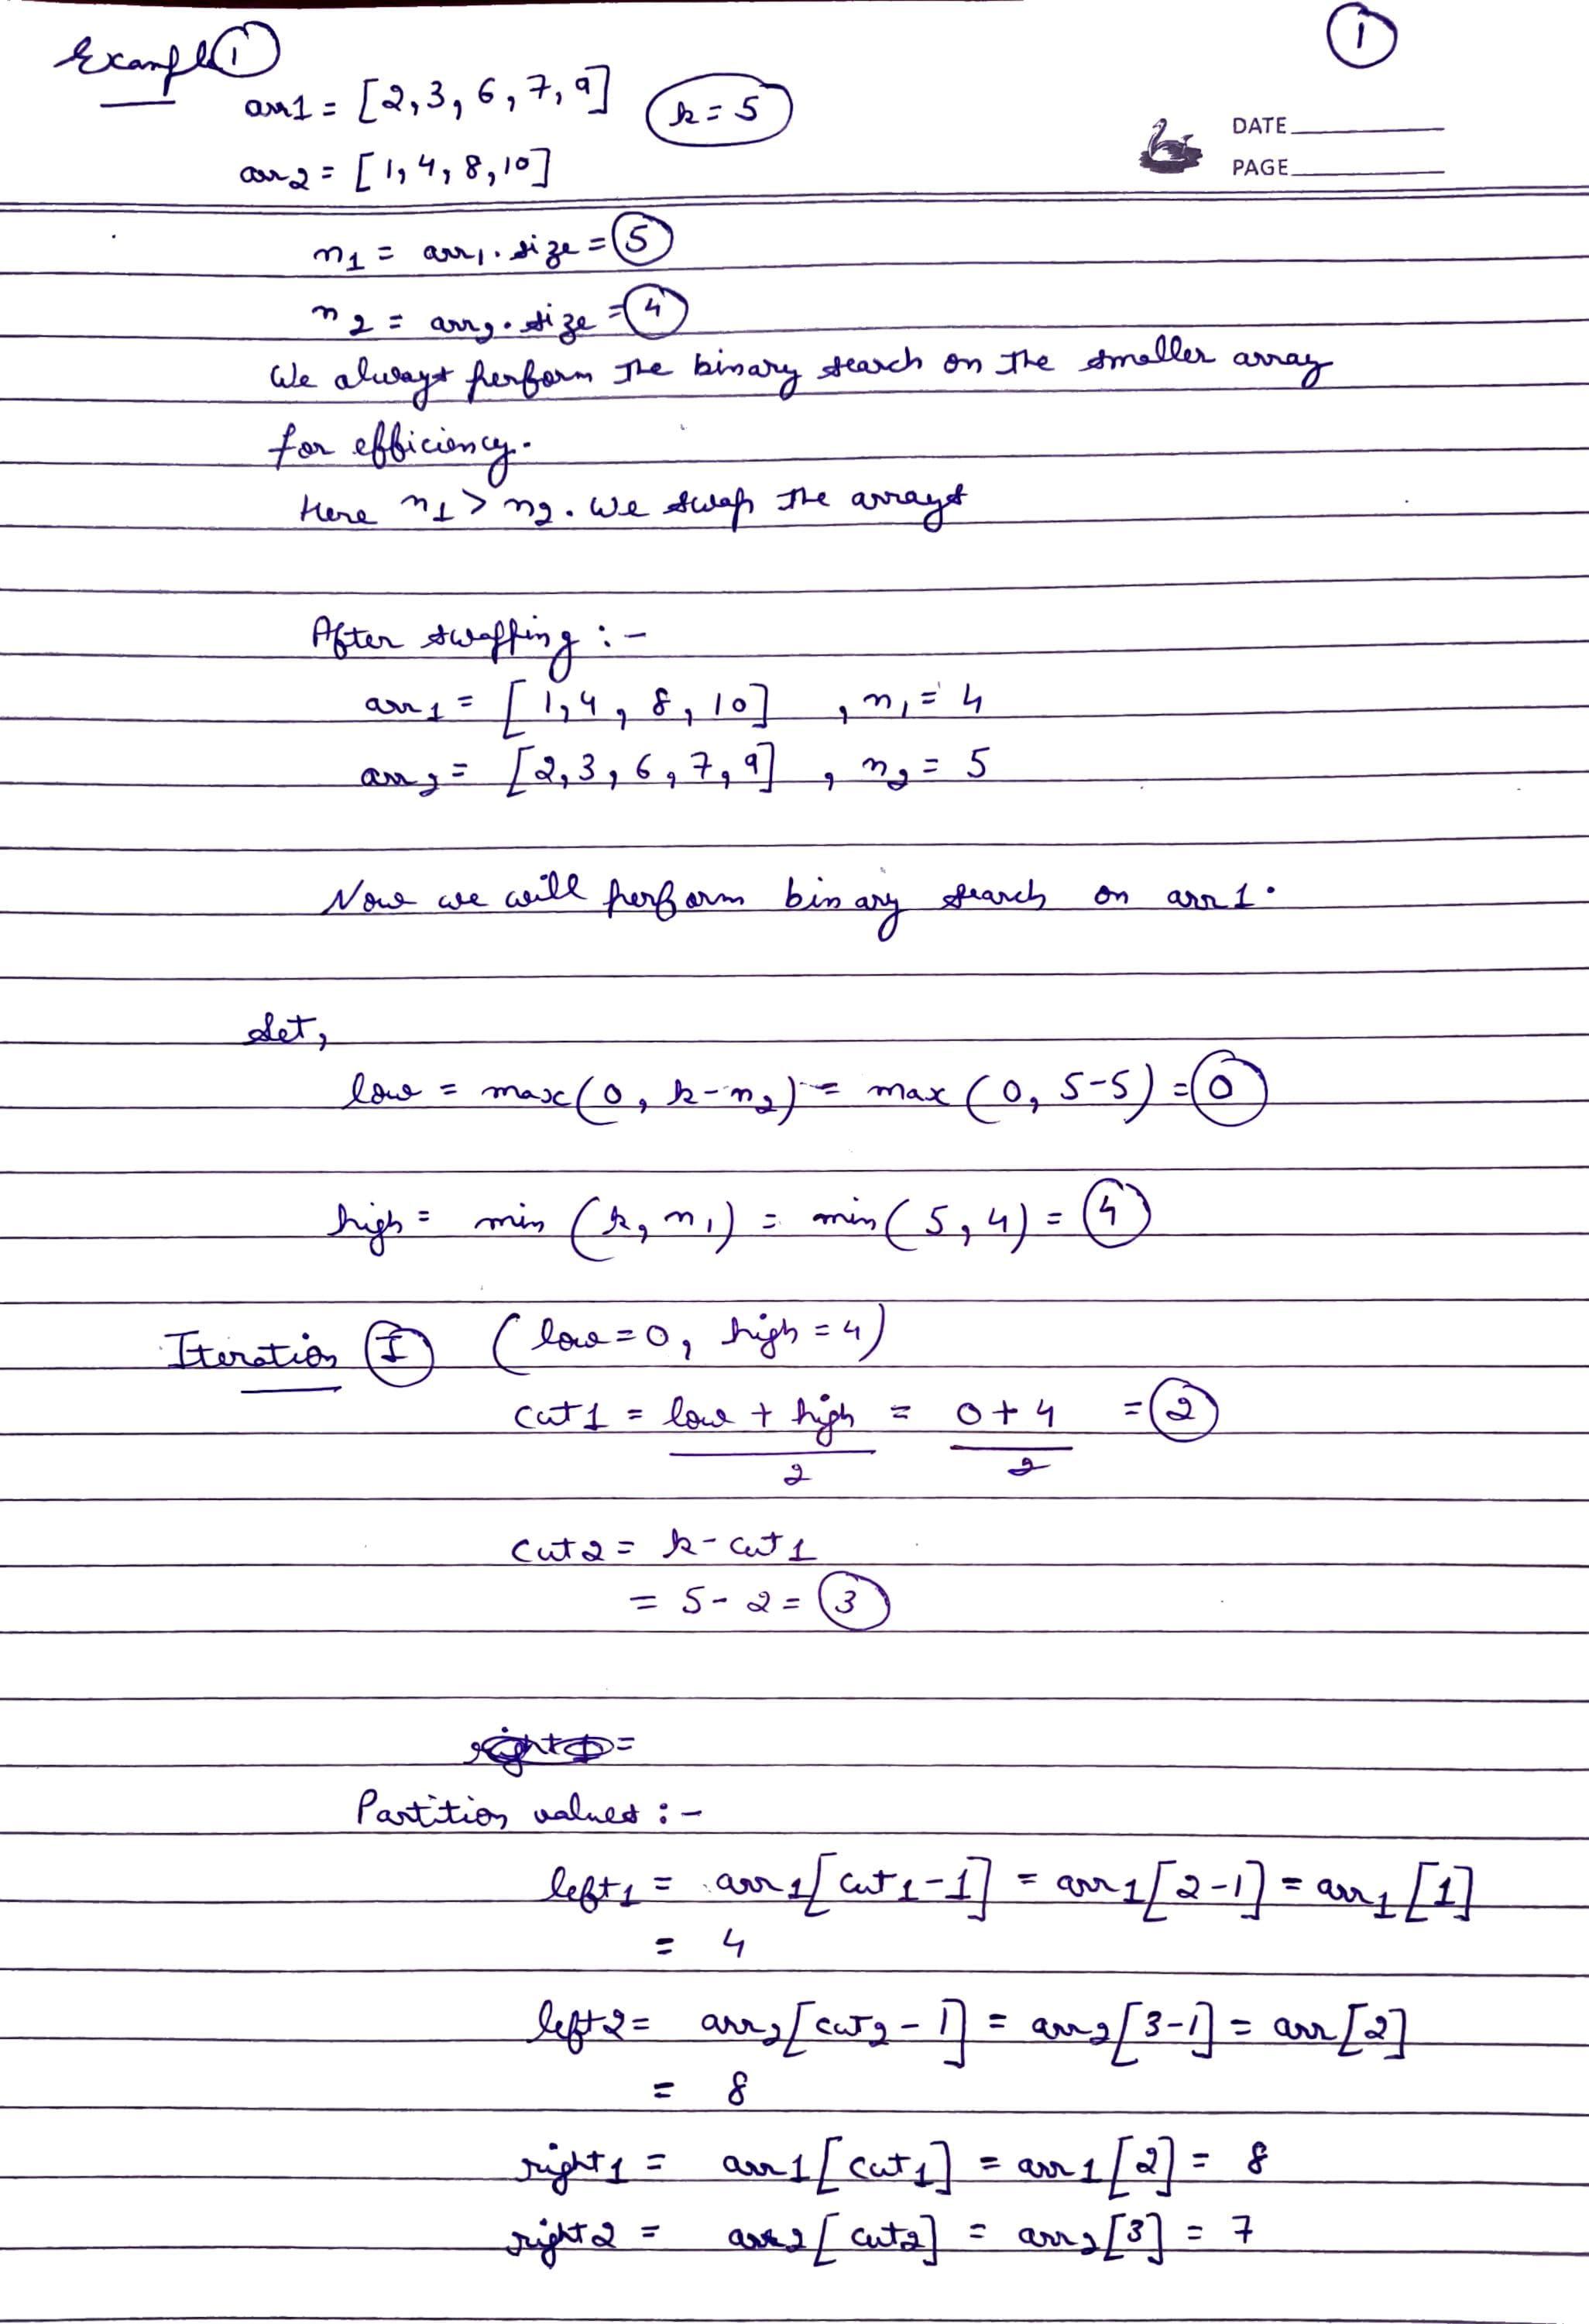 Example ①
①
arr1 = [2, 3, 6, 7, 9] k = 5
arr2 = [1, 4, 8, 10]
DATE
PAGE
n1 = arr1.size = 5
n2 = arr2.size = 4
We always perform the binary search on the smaller array
for efficiency.
Here n1 > n2. We swap the arrays
After swapping :-
arr1 = [1, 4, 8, 10] , n1 = 4
arr2 = [2, 3, 6, 7, 9] , n2 = 5
Now we will perform binary search on arr1.
Set,
low = max(0, k-n2) = max(0, 5-5) = 0
high = min(k, n1) = min(5, 4) = 4
Iteration I (low=0, high=4)
cut1 = low + high / 2 = 0 + 4 / 2 = 2
cut2 = k - cut1
= 5 - 2 = 3
Partition values :-
left1 = arr1[cut1-1] = arr1[2-1] = arr1[1]
= 4
left2 = arr2[cut2-1] = arr2[3-1] = arr[2]
= 8
right1 = arr1[cut1] = arr1[2] = 8
right2 = arr2[cut2] = arr2[3] = 7